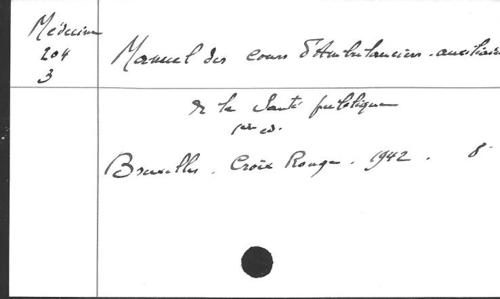 Médecine
204
3
Manuel des cours d'Ambulanciers-auxiliaires
de la Santé publique
1ère éd.
Bruxelles. Croix Rouge. 1942. 8°